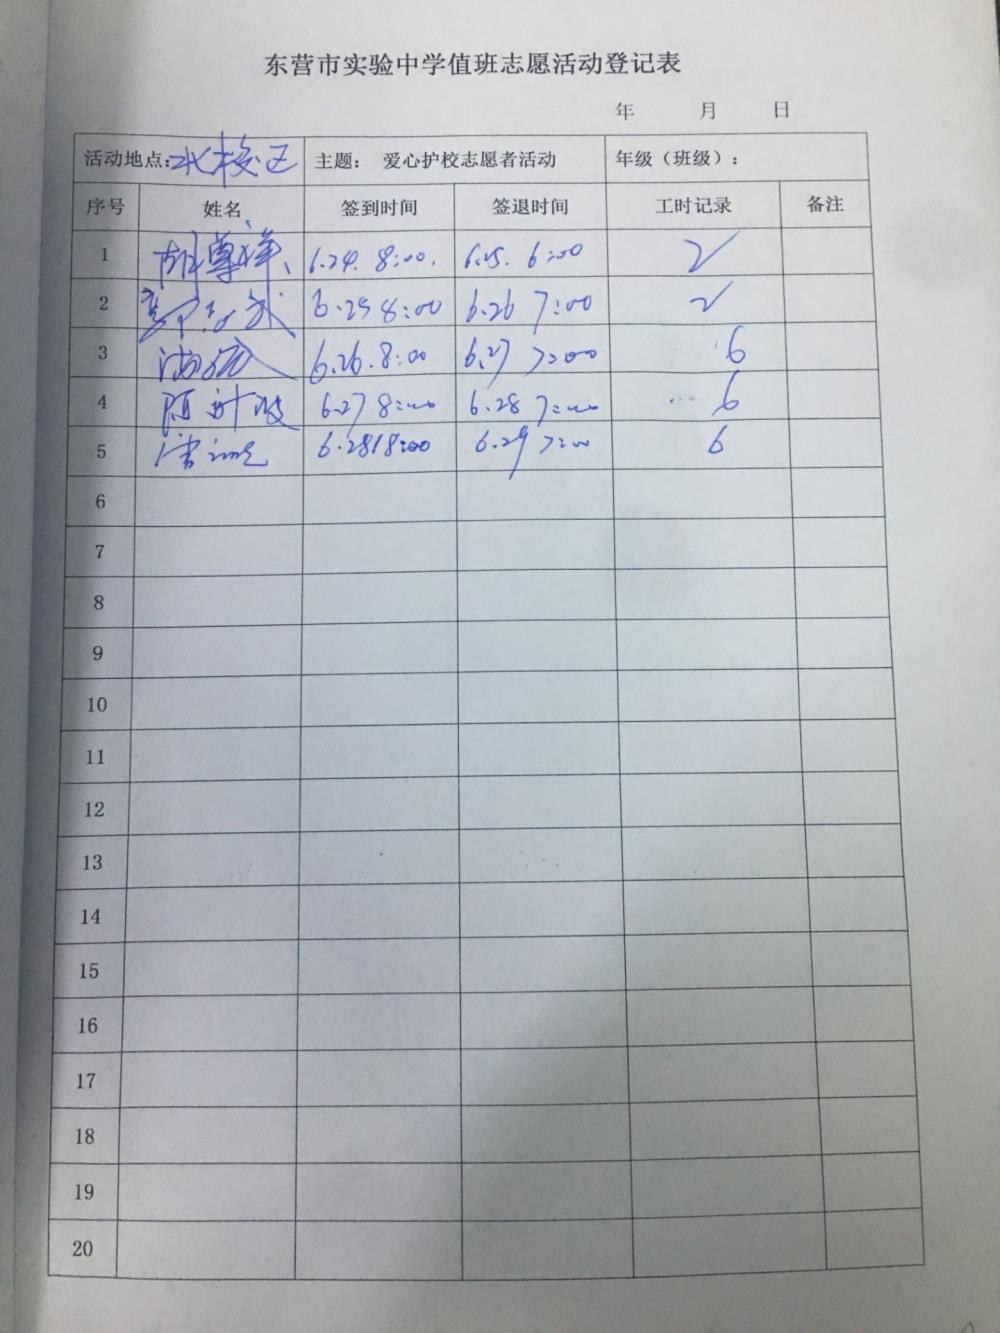 东营市实验中学值班志愿活动登记表
年 月 日
活动地点: 校区 主题: 爱心护校志愿者活动 年级（班级）:
序号 姓名 签到时间 签退时间 工时记录 备注
1 胡尊祥 6.24. 8:00. 6.25. 6:00 2
2 6.25 8:00 6.26 7:00 2
3 6.26. 8:00 6.27 7:00 6
4 6.27 8:00 6.28 7:00 6
5 6.28 18:00 6.29 7:00 6
6
7
8
9
10
11
12
13
14
15
16
17
18
19
20